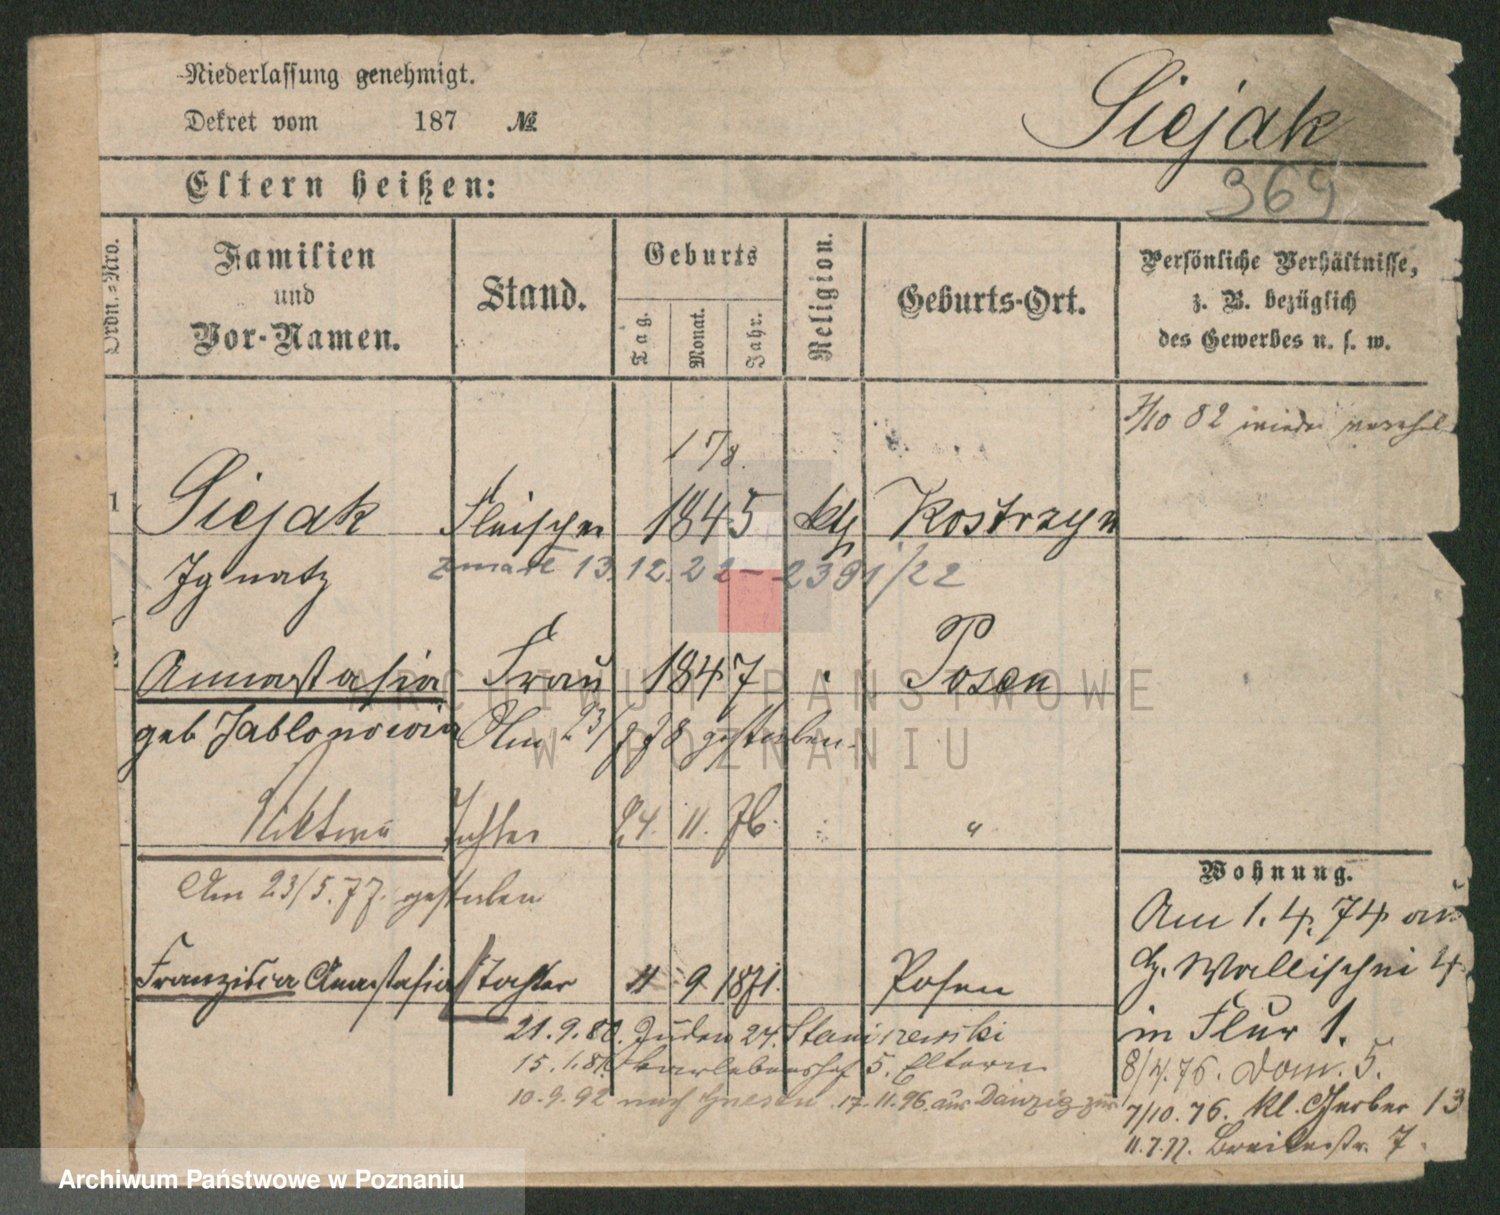 Niederlassung genehmigt.
Dekret vom 187 №
Siejak
369
Eltern heißen:
Ordn.=Nro.
Familien
und
Vor-Namen.
Stand.
Geburts
Tag.
Monat.
Jahr.
Religion.
Geburts-Ort.
Persönliche Verhältnisse,
z. B. bezüglich
des Gewerbes u. s. w.
7/10 82 wieder
17/8.
1 Siejak Fleischer 1845 kth Kostrzyn
Ignatz zmarł 13.12.22 - 2391/22
Annastasia Frau 1847 " Posen
geb Jablonowia Am 23/ 78 gestorben.
Tochter 24. 11. 76. "
Am 23/5.77. gestorben
Franzisca Anastasia Tochter 11 9 1871. Posen
21.9.80. Juden 24. Staniszewski
15.1.81. 5. Eltern
10.9.92 nach Gnesen. 17.11.96. aus Danzig zur
Wohnung.
Am 1.4.74 aus
Wallischei 4.
in Flur 1.
8/4.76. Dom. 5.
7/10.76. kl. Gerber 13
11.7.77. Breitestr. 7.
ARCHIWUM PAŃSTWOWE
W POZNANIU
Archiwum Państwowe w Poznaniu